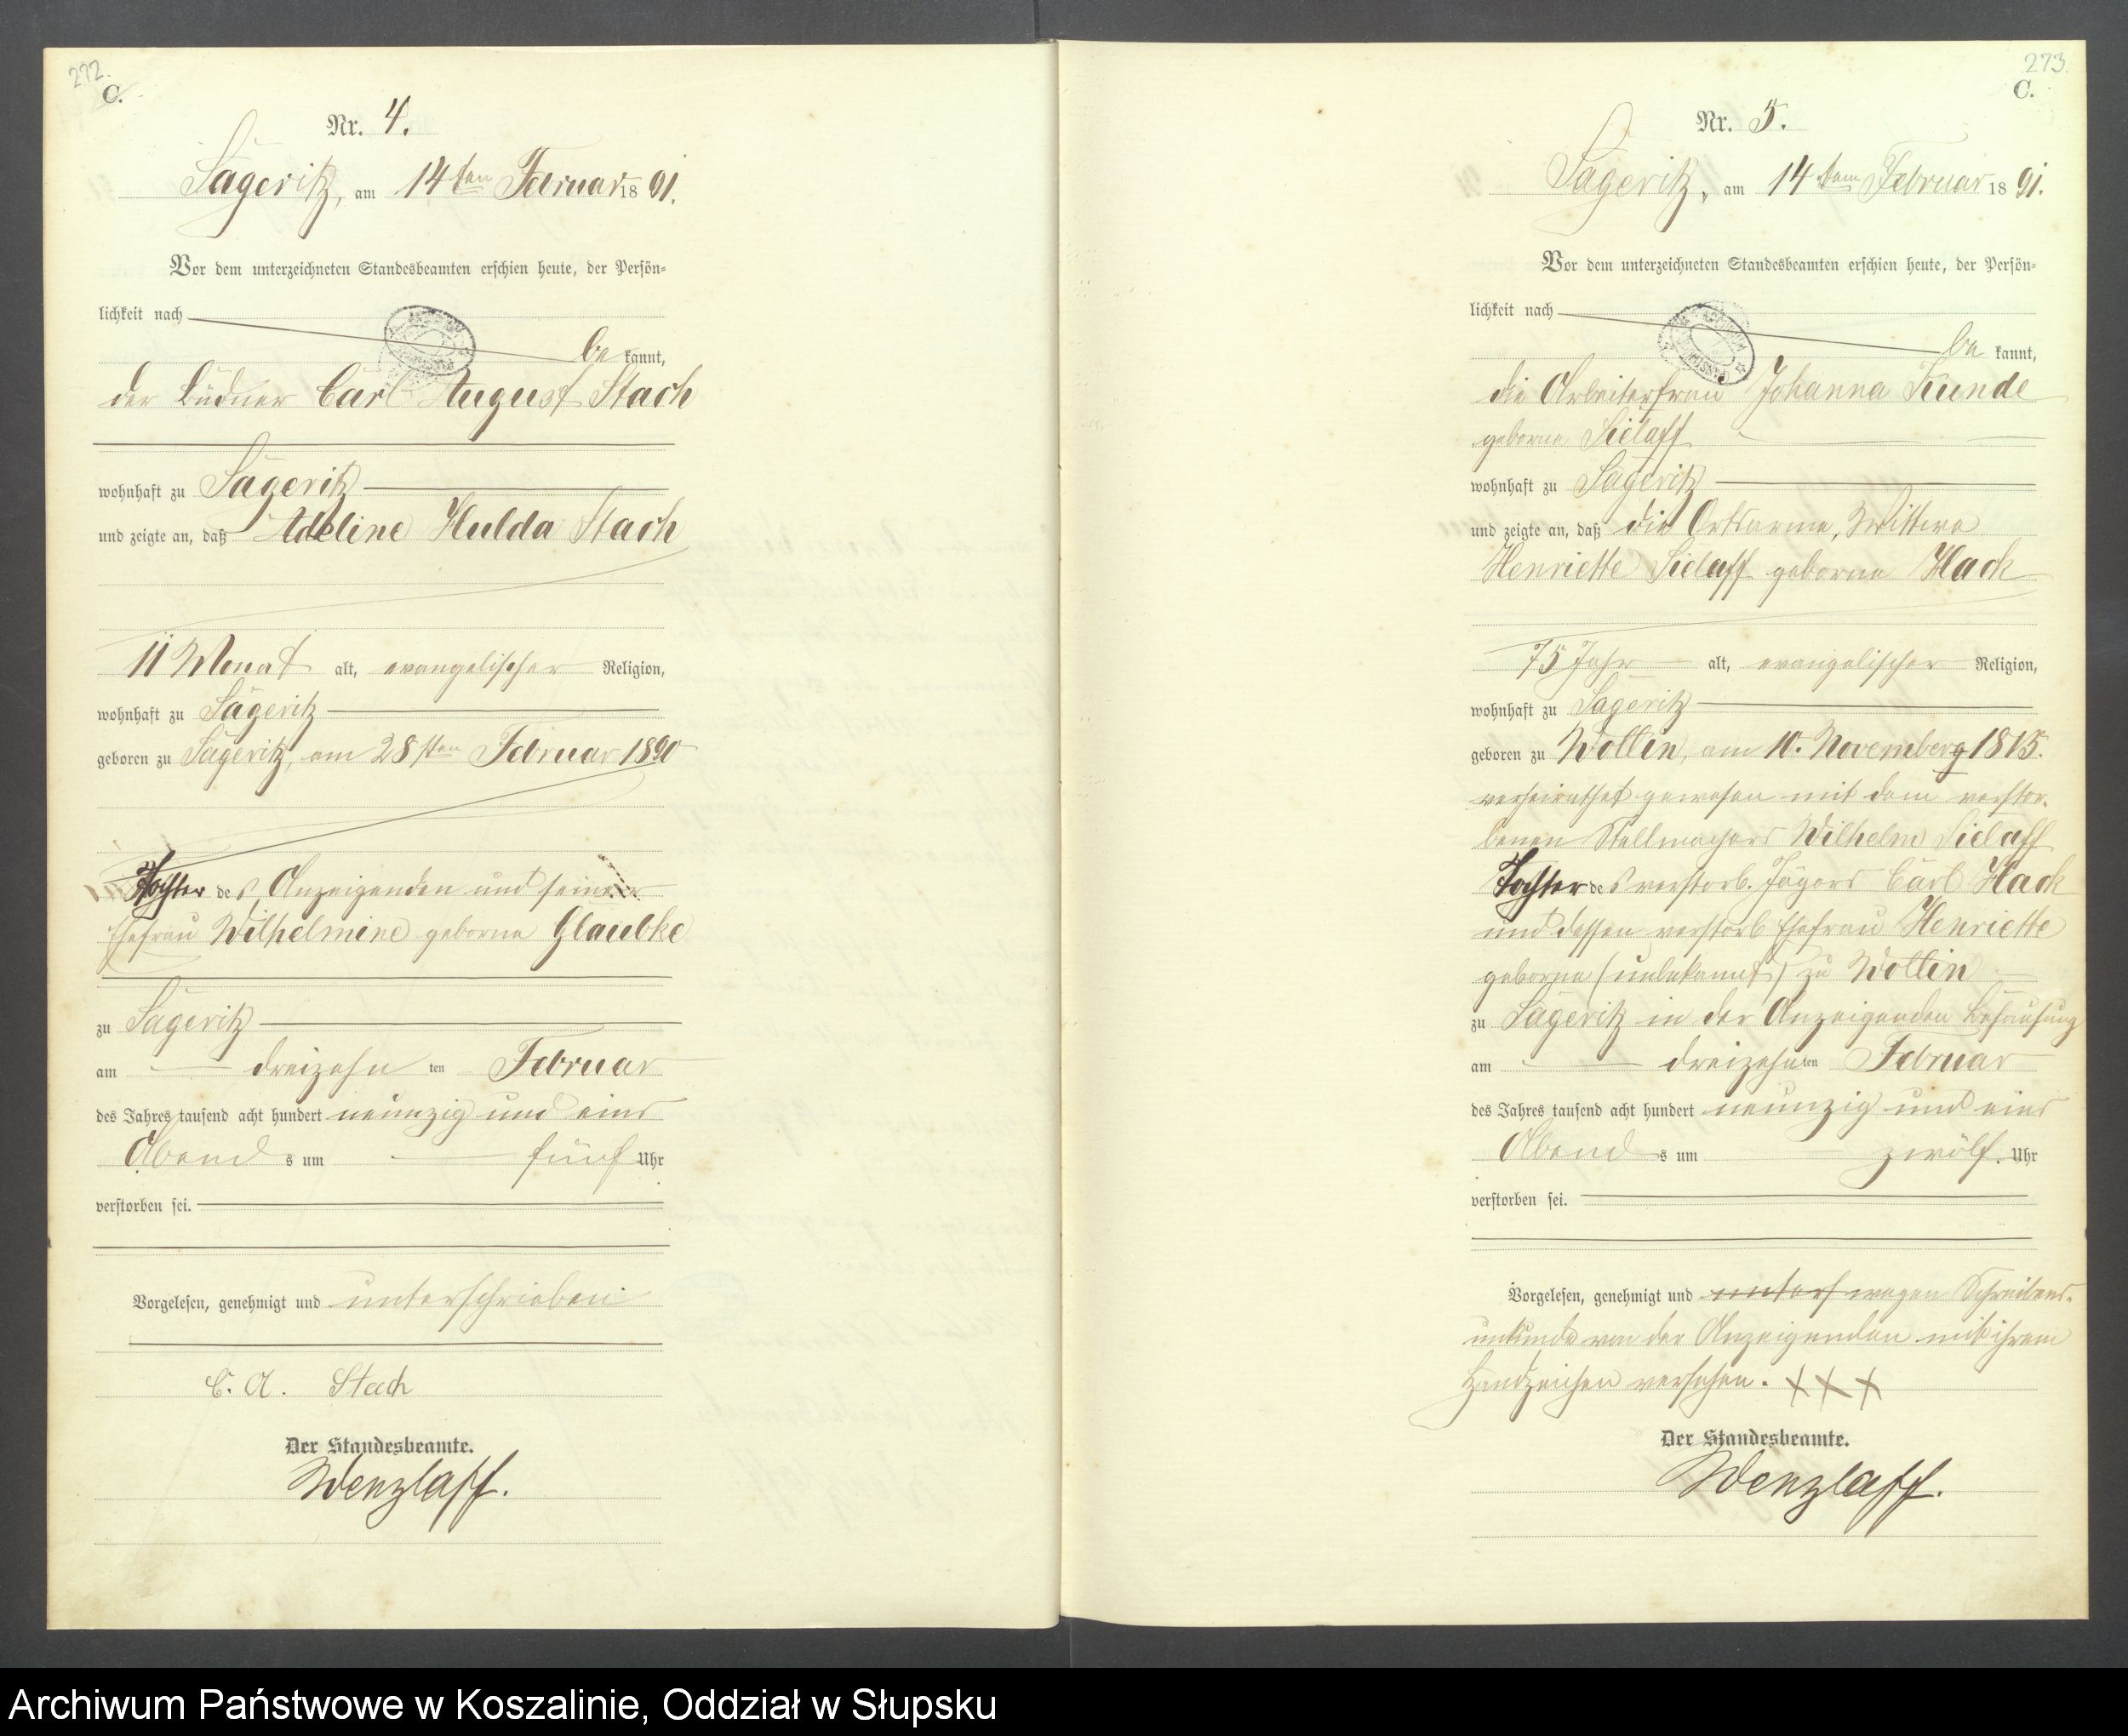 272.
C.
Nr. 4.
Sageritz, am 14ten Februar 18 91.
Vor dem unterzeichneten Standesbeamten erschien heute, der Persön=
lichkeit nach
be kannt,
der Büdner Carl August Stach
wohnhaft zu Sageritz
und zeigte an, daß Adeline Hulda Stach
11 Monat alt, evangelischer Religion,
wohnhaft zu Sageritz
geboren zu Sageritz, am 28sten Februar 1890
Tochter des Anzeigenden und seiner
Ehefrau Wilhelmine geborne Glaubke
zu Sageritz
am dreizehn ten Februar
des Jahres tausend acht hundert neunzig und eins
Abend s um fünf Uhr
verstorben sei.
Vorgelesen, genehmigt und unterschrieben
C. A. Stach
Der Standesbeamte.
Wenzlaff.
273.
C.
Nr. 5.
Sageritz, am 14ten Februar 18 91.
Vor dem unterzeichneten Standesbeamten erschien heute, der Persön=
lichkeit nach
be kannt,
die Arbeiterfrau Johanna Kunde
geborne Sielaff
wohnhaft zu Sageritz
und zeigte an, daß die Ortsarme, Wittwe
Henriette Sielaff geborne Hack
75 Jahr alt, evangelischer Religion,
wohnhaft zu Sageritz
geboren zu Wollin, am 10. November 1815.
verheirathet gewesen mit dem verstor-
benen Stellmachers Wilhelm Sielaff
Tochter des verstorb. Jägers Carl Hack
und dessen verstorb Ehefrau Henriette
geborne (unbekannt) zu Wollin
zu Sageritz in der Anzeigenden Behausung
am dreizehn ten Februar
des Jahres tausend acht hundert neunzig und eins
Abend s um zwölf. Uhr
verstorben sei.
Vorgelesen, genehmigt und unters wegen Schreibens-
unkunde von der Anzeigenden mit ihrem
Handzeichen versehen. XXX
Der Standesbeamte.
Wenzlaff.
Archiwum Państwowe w Koszalinie, Oddział w Słupsku